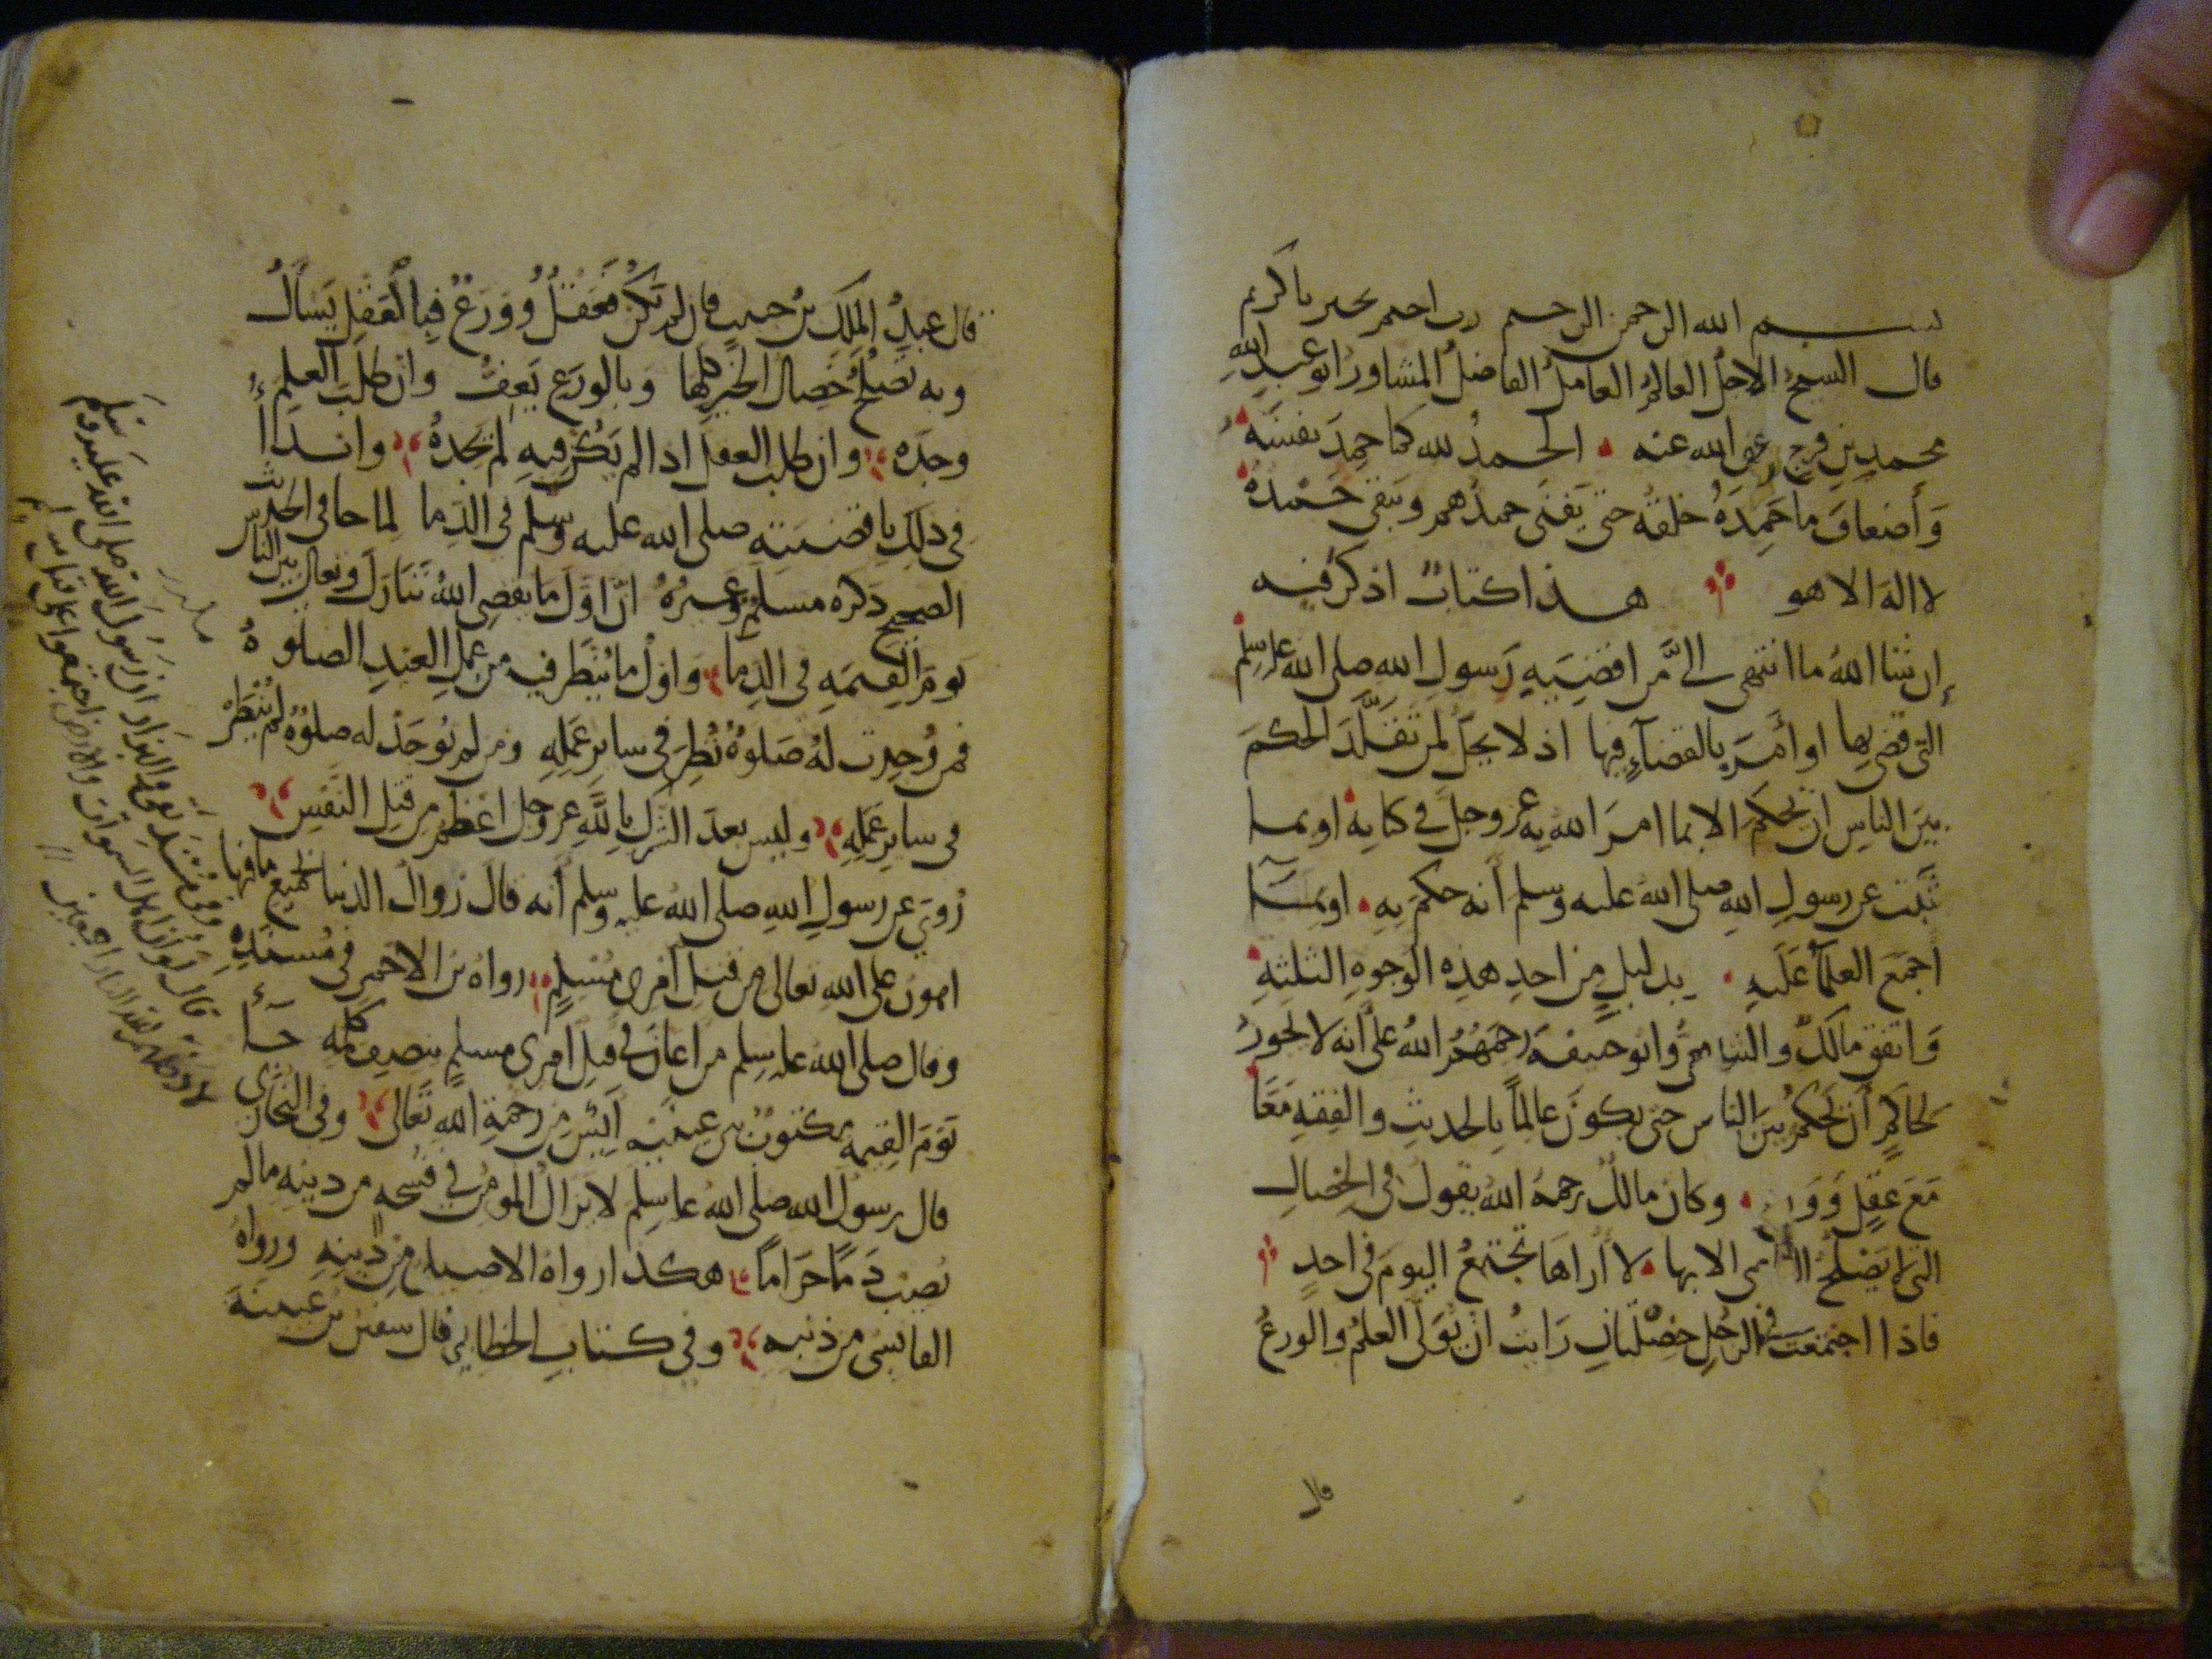 بسم الله الرحمن الرحيم رب اختم بخير يا كريم
قال الشيخ الاجل العالم العامل الفاضل المشاور ابو عبد الله
محمد بن فرج رضى الله عنه الحمد لله كما حمد نفسه
وأضعاف ما حمده خلقه حتى يفنى حمدهم ويبقى حمده
لا اله الا هو هذا كتاب اذكر فيه
إن شا الله ما انتهى الى من اقضية رسول الله صلى الله عليه وسلم
التى قضى بها او أمر بالقضآء فيها اذ لا يحل لمن تقلد الحكم
بين الناس ان يحكم الا بما امر الله به عز وجل في كتابه او بما
ثبت عن رسول الله صلى الله عليه وسلم أنه حكم به او بمآ
اجمع العلمآ عليه بدليل من احد هذه الوجوه الثلثة
واتفق مالك والشافعى وابو حنيفة رحمهم الله على انه لا يجوز
لحاكم أن يحكم بين الناس حتى يكون عالما بالحديث والفقه معا
مع عقل وو وكان مالك رحمه الله يقول فى الخصال
التى لا يصلح الا بها لا أراها تجتمع اليوم فى احد
فاذا اجتمعت فى الرجل خصلتان رايت ان يولى العلم والورع
قال
قال عبد الملك بن حبيب فان لم تكن فعقل وورع فبالعقل يسأل
وبه تصلح خصال الخير كلها وبالورع يعف وان طلب العلم
وجده وان طلب العقل اذا لم يكن فيه لم يجده وابتدأ
فى ذلك باقضيته صلى الله عليه وسلم فى الدما لما جا فى الحديث
الصحيح ذكره مسلم وغيره ان اول ما يقضى الله تبارك وتعالى بين الناس
يوم القيمة فى الدما واول ما ينظر فيه من عمل العبد الصلوة
فمن وجدت له صلوة نظر فى ساير عمله ومن لم توجد له صلوة لم ينظر
فى ساير عمله وليس بعد الشرك بالله عز وجل اعظم من قتل النفس
روي عن رسول الله صلى الله عليه وسلم أنه قال زوال الدنيا بجميع ما فيها
اهون على الله تعالى من قتل امرى مسلم رواه بن الاحمر فى مسنده
وقال صلى الله عليه وسلم من اعان في قتل امرى مسلم بنصف كلمة جآء
يوم القيمة مكتوب بين عينيه آيس من رحمة الله تعالى وفى البخارى
قال رسول الله صلى الله عليه وسلم لا يزال المومن في فسحة من دينه ما لم
يصب دما حراما هكذا رواه الاصيلى من دينه ورواه
القابسى من ذنبه وفي كتاب الخطابى قال سفين بن عيينة
وفى مسند بقى والبزار ان رسول الله صلى الله عليه وسلم
قال لو ان اهل السموات والارض اجتمعوا على قتل